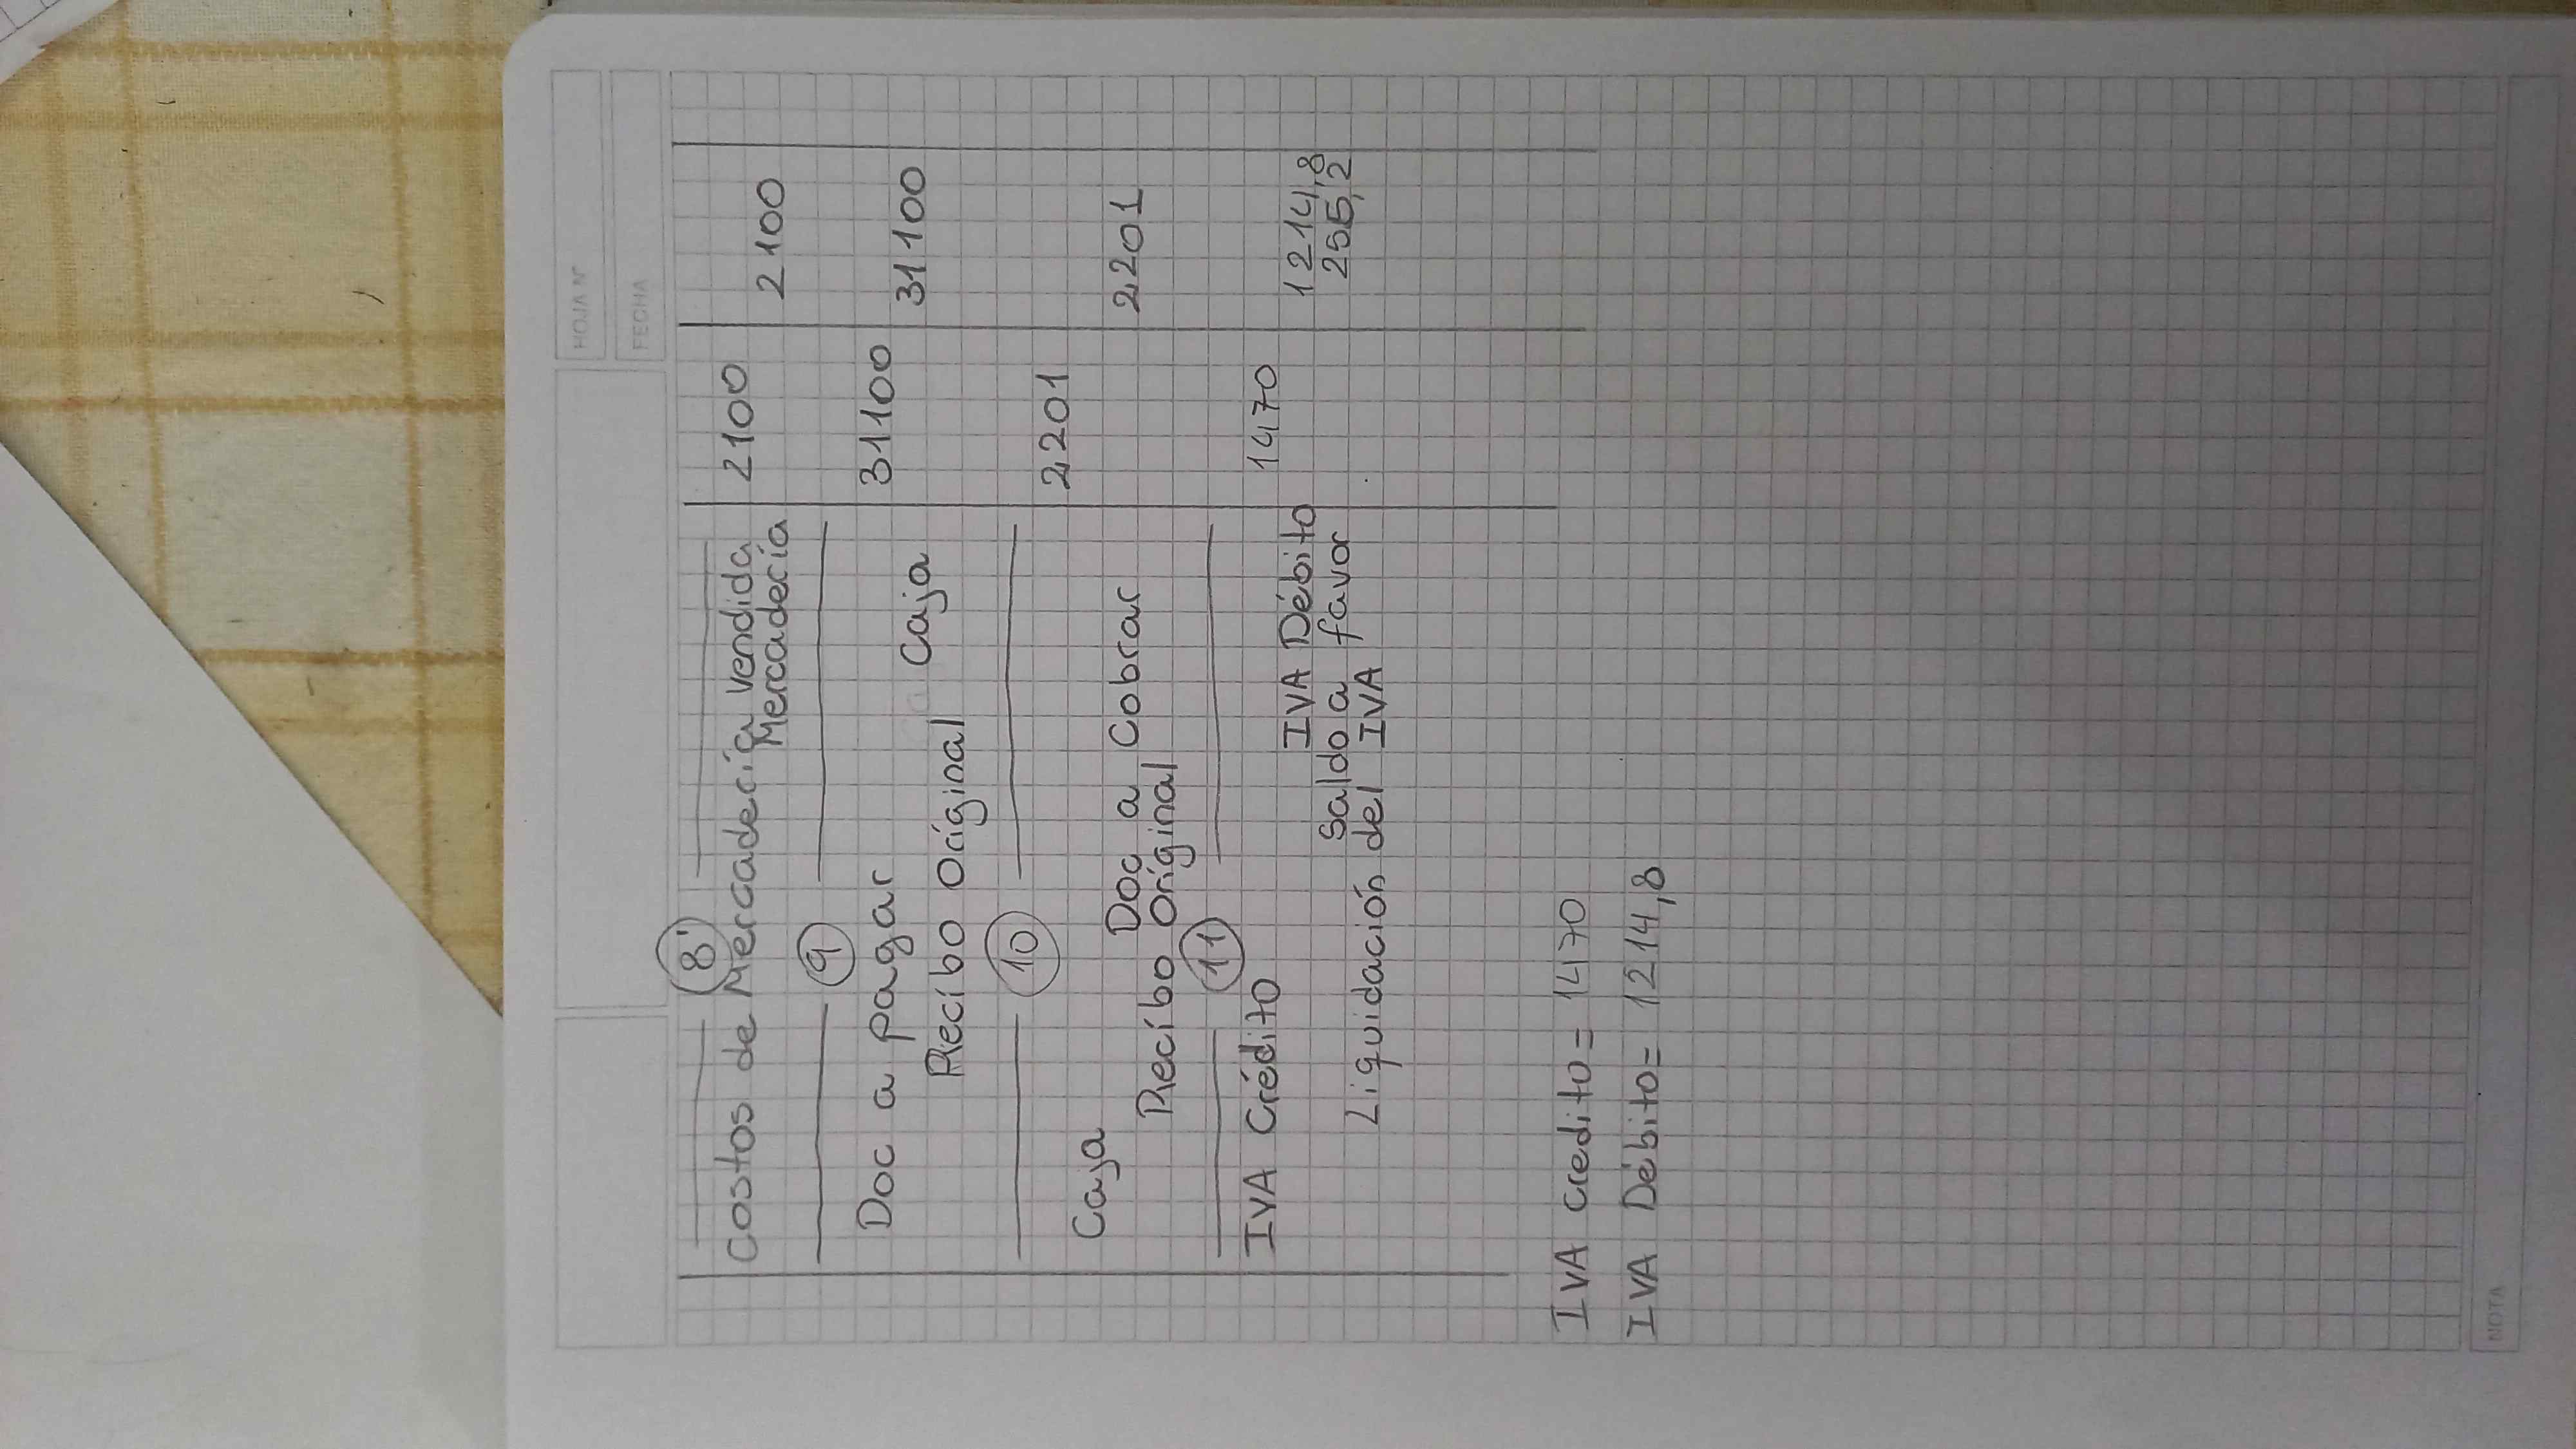 HOJA N°
FECHA
8'
Costos de Mercadería vendida 2100
Mercadería 2100
9
Doc a pagar 31100
Caja 31100
Recibo Original
10
Caja 2201
Doc a Cobrar 2201
Recibo Original
11
IVA Crédito 1470
IVA Débito 1214,8
Saldo a favor 255,2
Liquidación del IVA
IVA Credito= 1470
IVA Débito= 1214,8
NOTA